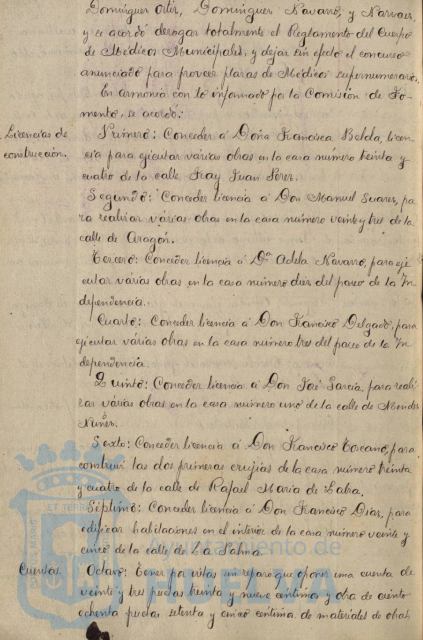 Domínguez Ortiz, Domínguez Navarro, y Narvaez,
y se acordó derogar totalmente el Reglamento del Cuerpo
de Médicos Municipales, y dejar sin efecto el concurso
anunciado para proveer plazas de Médicos supernumerarios.
En armonía con lo informado por la Comisión de Fo-
mento, se acordó:
Licencias de
construcción.
Primero: Conceder á Doña Francisca Belda, licen-
cia para ejecutar várias obras en la casa número treinta y
cuatro de la calle Fray Juan Perez.
Segundo: Conceder licencia á Don Manuel Suarez, pa-
ra realizar várias obras en la casa número veinte y tres de la
calle de Aragón.
Tercero: Conceder licencia á Dª Adela Navarro, para eje-
cutar várias obras en la casa número diez del paseo de la In
dependencia.
Cuarto: Conceder licencia á Don Francisco Delgado, para
ejecutar várias obras en la casa número tres del paseo de la In
dependencia.
Quinto: Conceder licencia á Don José García, para reali-
zar várias obras en la casa número uno de la calle de Mendez
Nuñez.
Sexto: Conceder licencia á Don Francisco Toscano, para
construir las dos primeras crujias de la casa número treinta
y cuatro de la calle de Rafael María de Labra.
Séptimo: Conceder licencia á Don Francisco Díaz, para
edificar habitaciones en el interior de la casa número veinte y
cinco de la calle de La Palma.
Ayuntamiento de
Cuentas.
Octavo: Tener por vistas sin reparo que oponer una cuenta de
veinte y tres pesetas treinta y nueve céntimos y otra de ciento
ochenta pesetas setenta y cinco céntimos de materiales de obras